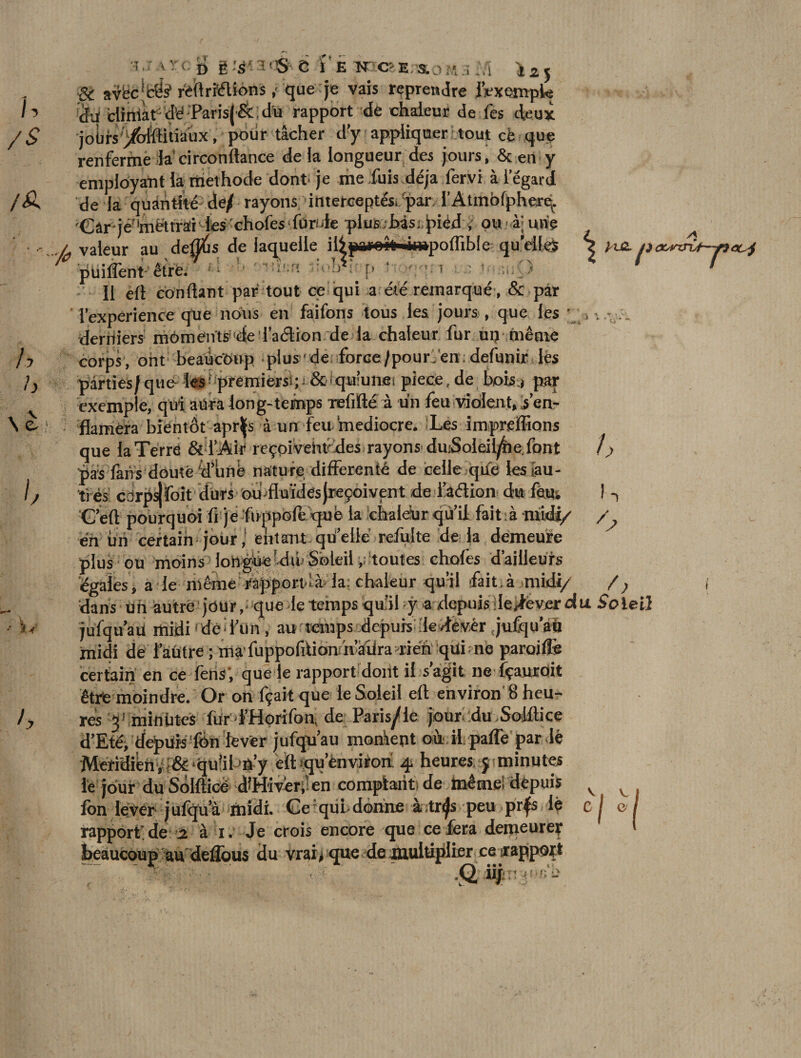 DES SCIENCES. 125
& avec ces restrictions, que je vais reprendre l'exemple
du climat de Paris & du rapport de chaleur de ses deux
jours solstitiaux, pour tâcher d'y appliquer tout ce que
renferme la circonstance de la longueur des jours, & en y
employant la methode dont je me suis déja servi à l'égard
de la quantité de rayons interceptés par l'Atmosphere.
Car je mettrai les choses sur le plus bas pied, ou à une
valeur au dessus de laquelle il paroît impossible qu'elles
puissent être.
Il est constant par tout ce qui a été remarqué, & par
l'experience que nous en faisons tous les jours, que les
derniers moments de l'action de la chaleur sur un même
corps, ont beaucoup plus de force pour en desunir les
parties que les premiers; & qu'une piece de bois, par
exemple, qui aura long-temps resisté à un feu violent, s'en-
flamera bientôt après à un feu mediocre. Les impressions
que la Terre & l'Air reçoivent des rayons du Soleil, ne font
pas sans doute d'une nature differente de celle que les au-
tres corps soit durs ou fluïdes reçoivent de l'action du feu.
C'est pourquoi si je suppose que la chaleur qu'il fait à midi
en un certain jour, entant qu'elle resulte de la demeure
plus ou moins longue du Soleil, toutes choses d'ailleurs
égales, a le même rapport à la chaleur qu'il fait à midi
dans un autre jour, que le temps qu'il y a depuis le lever du Soleil
jusqu'au midi de l'un, au temps depuis le lever jusqu'au
midi de l'autre; ma supposition n'aura rien qui ne paroisse
certain en ce sens, que le rapport dont il s'agit ne sçauroit
être moindre. Or on sçait que le Soleil est environ 8 heu-
res 3 minutes sur l'Horison de Paris, le jour du Solstice
d'Eté, depuis son lever jusqu'au moment où il passe par le
Meridien, & qu'il n'y est qu'environ 4 heures 5 minutes
le jour du Solstice d'Hiver, en comptant de même depuis
son lever jusqu'à midi. Ce qui donne à très peu près le
rapport de 2 à 1. Je crois encore que ce sera demeurer
beaucoup au dessous du vrai, que de multiplier ce rapport
Q iij